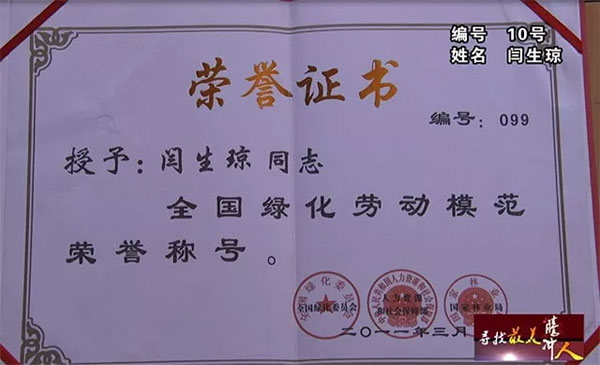 编号 10号
姓名 闫生琼
荣誉证书
编号：099
授予：闫生琼同志
全国绿化劳动模范
荣誉称号。
全国绿化委员会
人力资源
和社会保障部
国家林业局
二〇一一年三月
寻找最美腾冲人